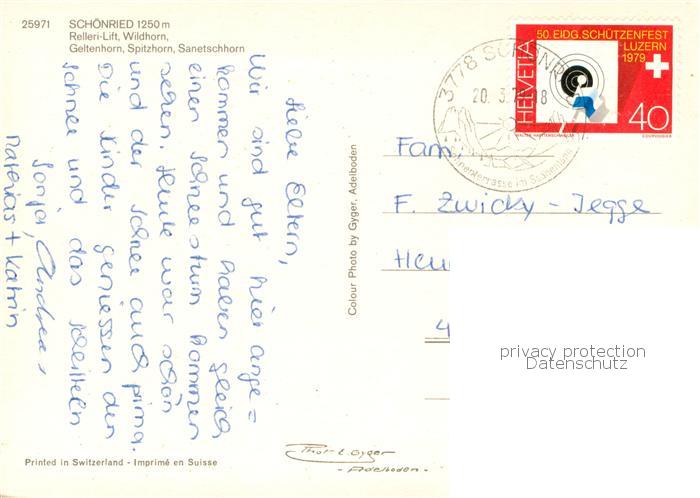 25971 SCHÖNRIED 1250 m
Relleri-Lift, Wildhorn,
Geltenhorn, Spitzhorn, Sanetschhorn
Liebe Eltern,
Wir sind gut hier ange=
kommen und haben gleich
einen Schneesturm kommen
sehen. Heute war schön
und der Schnee auch prima.
Die Kinder geniessen den
Schnee und das schlitteln
Sonja, Andrea,
Mathias + Katrin
Printed in Switzerland - Imprimé en Suisse
Colour Photo by Gyger, Adelboden
Phot. E. Gyger
- Adelboden -
3778 SCHÖNRI
20. 3. 79 18
Sonnenterrasse im Saanenland
50. EIDG. SCHÜTZENFEST
LUZERN
1979
HELVETIA
40
COURVOISIER
Fam.
F. Zwicky - Jegge
4
privacy protection
Datenschutz